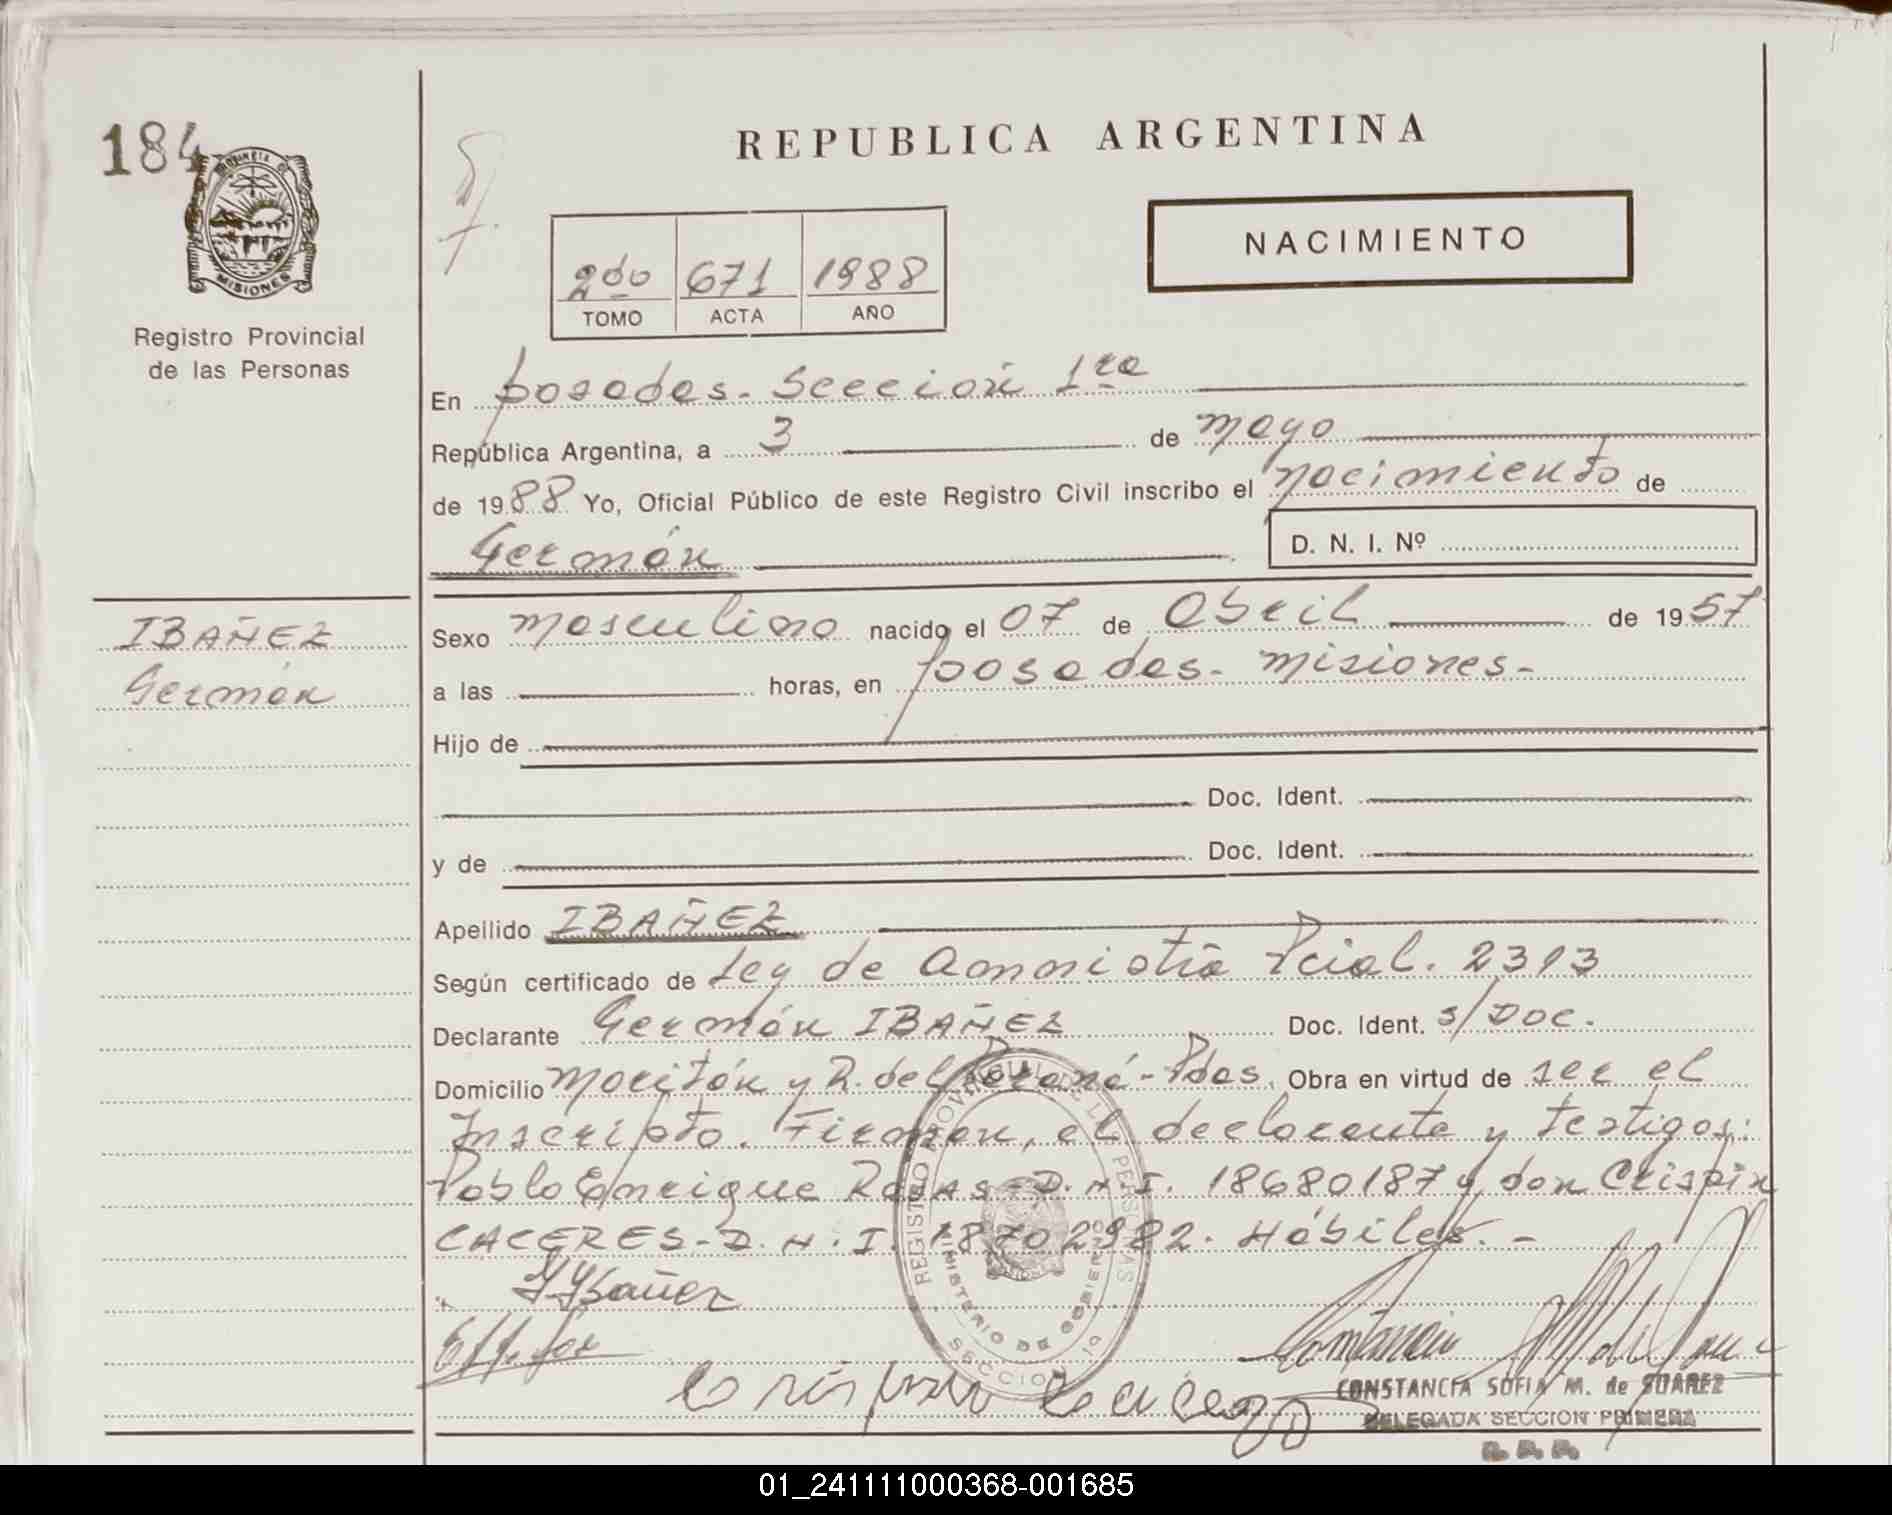 184
PROVINCIA DE
MISIONES
Registro Provincial
de las Personas
REPUBLICA ARGENTINA
NACIMIENTO
2do 671 1988
TOMO ACTA AÑO
En Posadas - Sección 1ra
República Argentina, a 3 de mayo
de 1988 Yo, Oficial Público de este Registro Civil inscribo el nacimiento de
Germán D. N. I. Nº
IBAÑEZ
Germán
Sexo masculino nacido el 07 de Abril de 1957
a las horas, en Posadas - Misiones -
Hijo de
Doc. Ident.
y de Doc. Ident.
Apellido IBAÑEZ
Según certificado de Ley de Amnistía Pcial. 2313
Declarante Germán IBAÑEZ Doc. Ident. s/Doc.
Domicilio Moritán y R. del Paraná - Pdas. Obra en virtud de ser el
Inscripto. Firman, el declarante y testigos:
Pablo Enrique ROJAS - D.N.I. 18680187 y don Crispín
CACERES - D.N.I. 18702982. Hábiles. -
REGISTRO PROVINCIAL DE LAS PERSONAS
MINISTERIO DE GOBIERNO
SECCION 1º
Ybañez
Crispin Caceres
CONSTANCIA SOFIA M. de SUAREZ
DELEGADA SECCION PRIMERA
R. P. P.
01_241111000368-001685